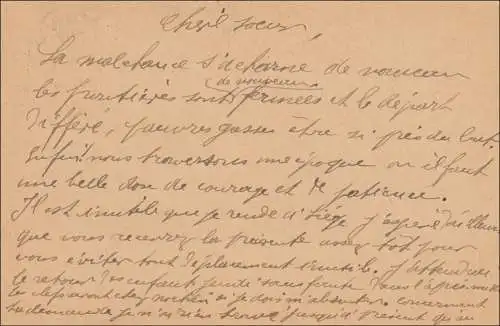 Chère soeur,
La malchance s'acharne de nouveau
de nouveau
les frontières sont fermées et le départ
différé, pauvres gosses être si près du but.
Enfin nous traversons une époque où il faut
une belle dose de courage et de patience.
Il est inutile que je rende à Liège j'espère d'ailleurs
que vous recevrez la présente assez tôt pour
vous éviter tout déplacement inutile. J'attendrai
le retour des enfants
les clefs sont chez si je dois m'absenter. concernant
je n'ai rien trouvé jusqu'à présent